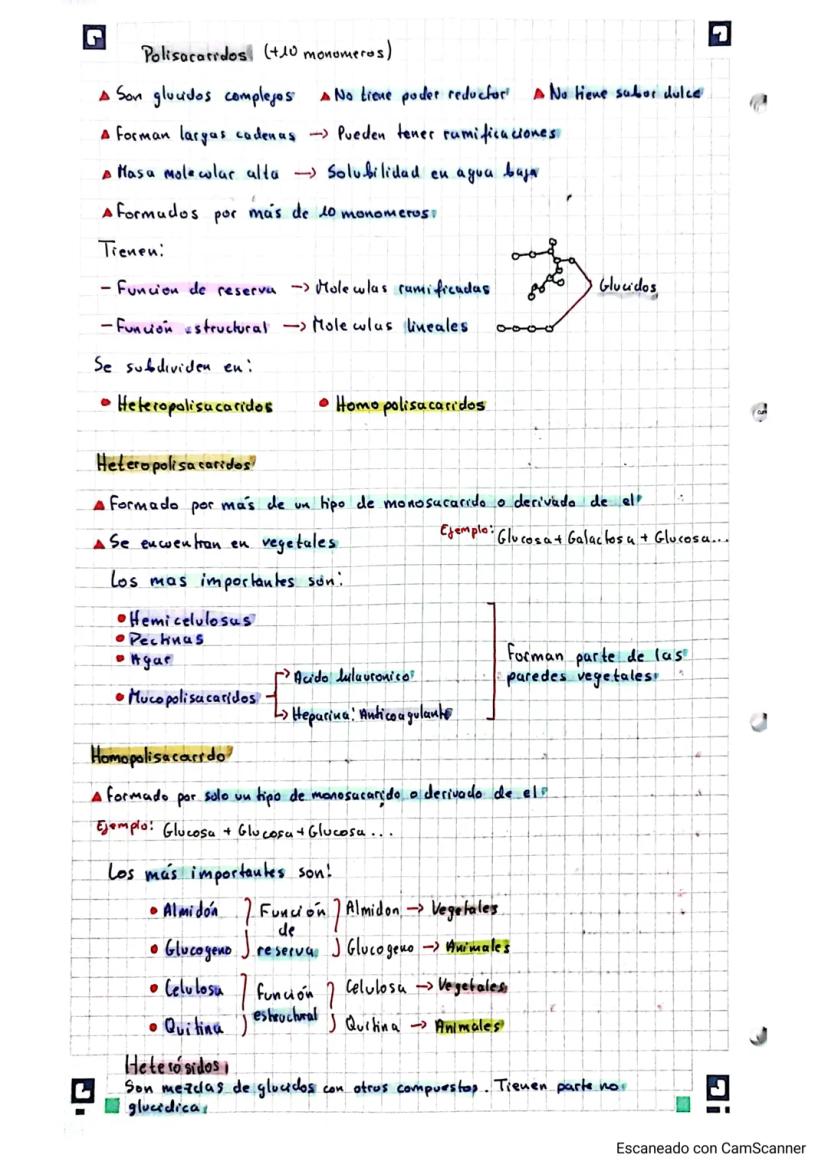 Polisacaridos (+10 monomeros)
▲ Son glucidos complejos ▲ No tiene poder reductor ▲ No tiene sabor dulce
▲ Forman largas cadenas → Pueden tener ramificaciones
▲ Masa molecular alta → Solubilidad en agua baja
▲ Formados por más de 10 monomeros
Tienen:
- Funcion de reserva → Moleculas ramificadas
Glucidos
- Función estructural → Moleculas lineales
Se subdividen en:
• Heteropolisacaridos • Homopolisacaridos
Heteropolisacaridos
▲ Formado por más de un tipo de monosacarido o derivado de el
▲ Se encuentran en vegetales
Ejemplo: Glucosa + Galactosa + Glucosa...
Los mas importantes son:
• Hemicelulosas
• Pectinas
• Agar
• Mucopolisacaridos
→ Acido hilauronico
→ Heparina: Anticoagulante
Forman parte de las
paredes vegetales
Homopolisacarido
▲ Formado por solo un tipo de monosacarido o derivado de el
Ejemplo: Glucosa + Glucosa + Glucosa ...
Los más importantes son:
• Almidón
• Glucogeno
Función
de
reserva
Almidon → Vegetales
Glucogeno → Animales
• Celulosa
• Quitina
Función
estructural
Celulosa → Vegetales
Quitina → Animales
Heterósidos
Son mezclas de glucidos con otros compuestos. Tienen parte no
glucidica
Escaneado con CamScanner